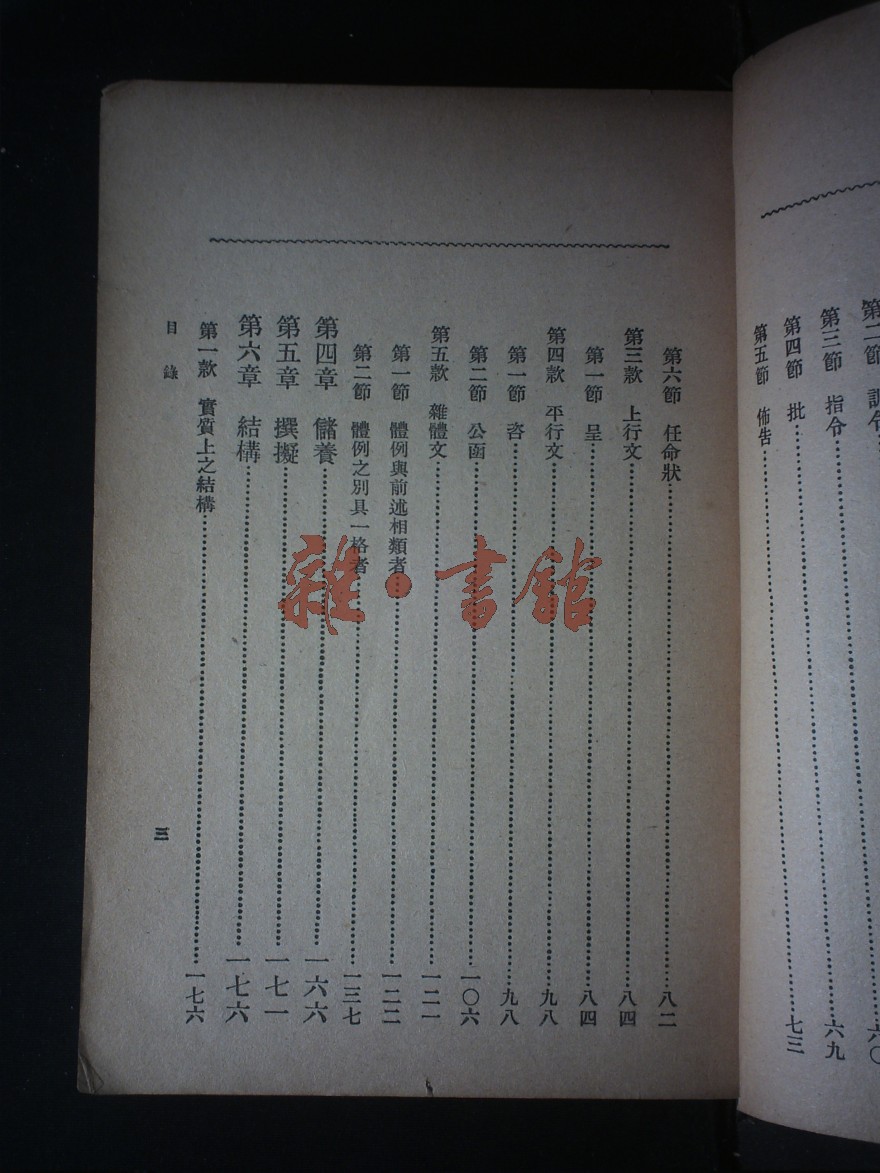 第二節 訓令 六〇
第三節 指令 六九
第四節 批 七三
第五節 佈告
第六節 任命狀 八二
第三款 上行文 八四
第一節 呈 八四
第四款 平行文 九八
第一節 咨 九八
第二節 公函 一〇六
第五款 雜體文 一二一
第一節 體例與前述相類者 一二二
第二節 體例之別具一格者 一三七
第四章 儲養 一六六
第五章 撰擬 一七一
第六章 結構 一七六
第一款 實質上之結構 一七六
目錄 三
雜·書館